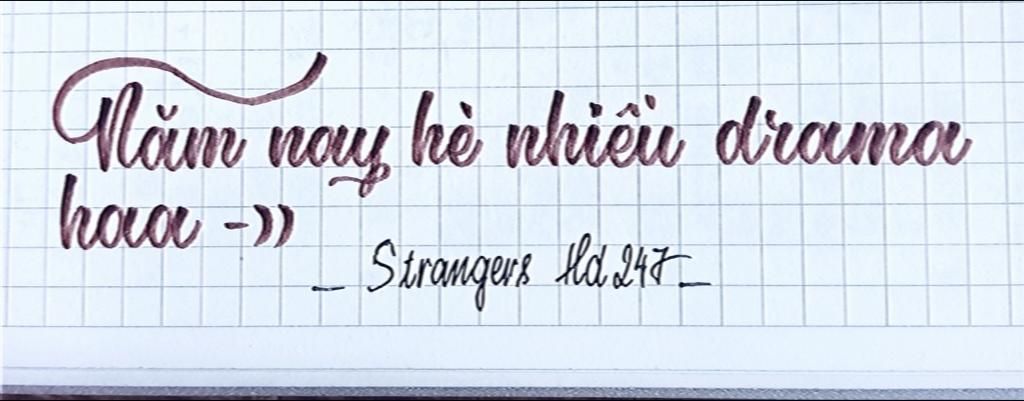 Năm nay hè nhiều drama
haa -))
_ Strangers Hd 247 _